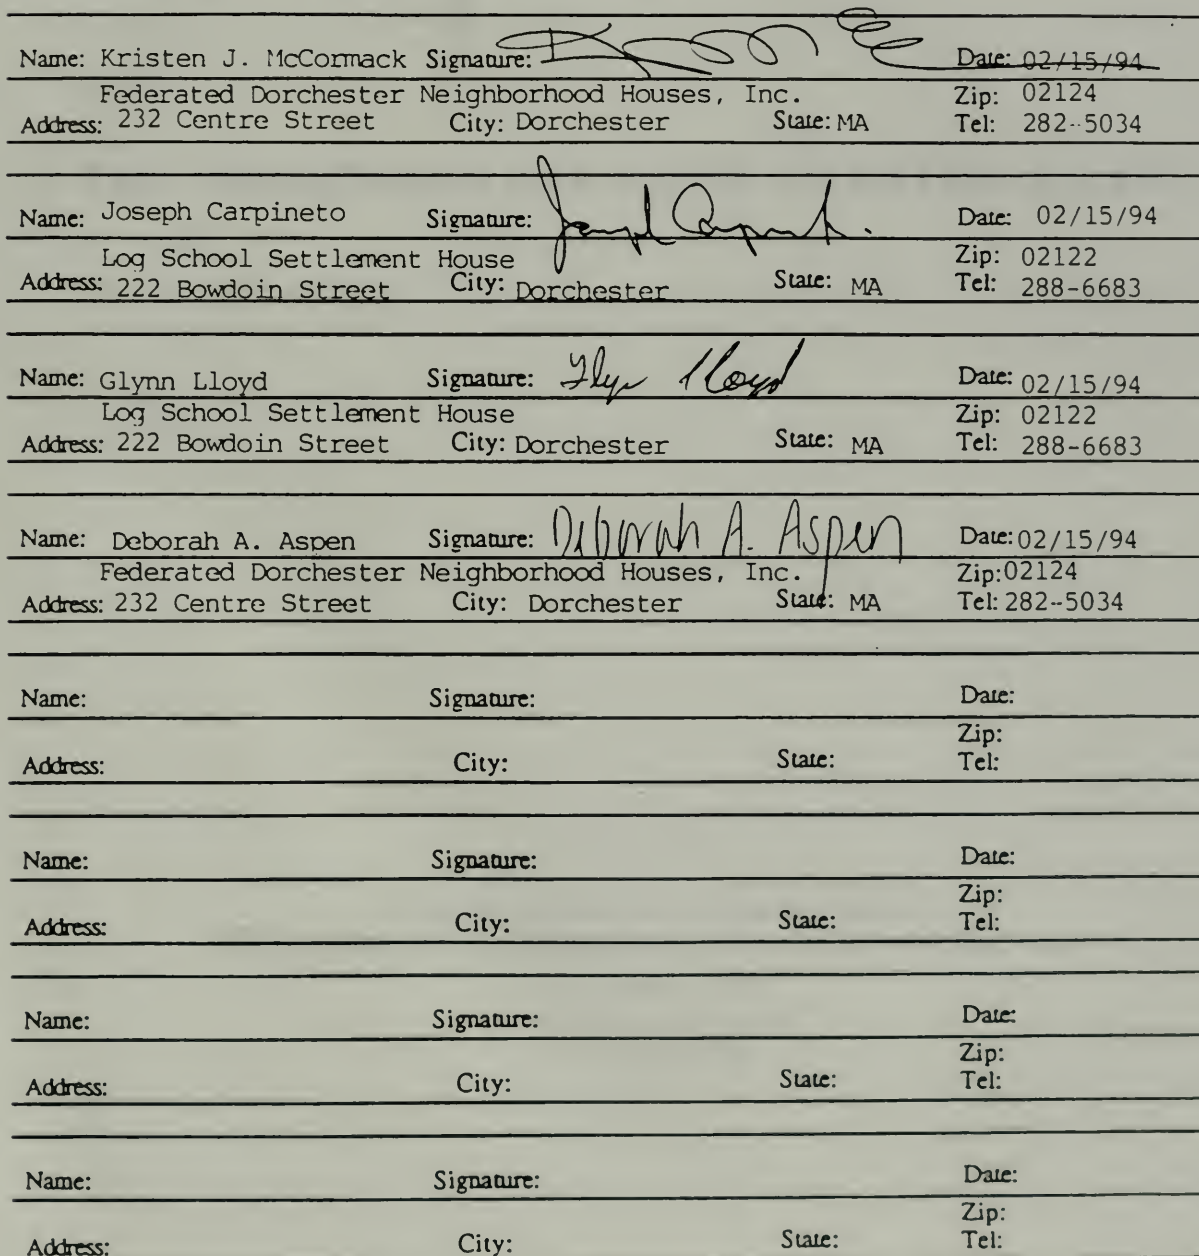 Name: Kristen J. McCormack Signature: Date: 02/15/94
Federated Dorchester Neighborhood Houses, Inc. Zip: 02124
Address: 232 Centre Street City: Dorchester State: MA Tel: 282-5034
Name: Joseph Carpineto Signature: Joseph Carpineto Date: 02/15/94
Log School Settlement House Zip: 02122
Address: 222 Bowdoin Street City: Dorchester State: MA Tel: 288-6683
Name: Glynn Lloyd Signature: Glynn Lloyd Date: 02/15/94
Log School Settlement House Zip: 02122
Address: 222 Bowdoin Street City: Dorchester State: MA Tel: 288-6683
Name: Deborah A. Aspen Signature: Deborah A. Aspen Date: 02/15/94
Federated Dorchester Neighborhood Houses, Inc. Zip: 02124
Address: 232 Centre Street City: Dorchester State: MA Tel: 282-5034
Name: Signature: Date:
Zip:
Address: City: State: Tel:
Name: Signature: Date:
Zip:
Address: City: State: Tel:
Name: Signature: Date:
Zip:
Address: City: State: Tel:
Name: Signature: Date:
Zip:
Address: City: State: Tel: